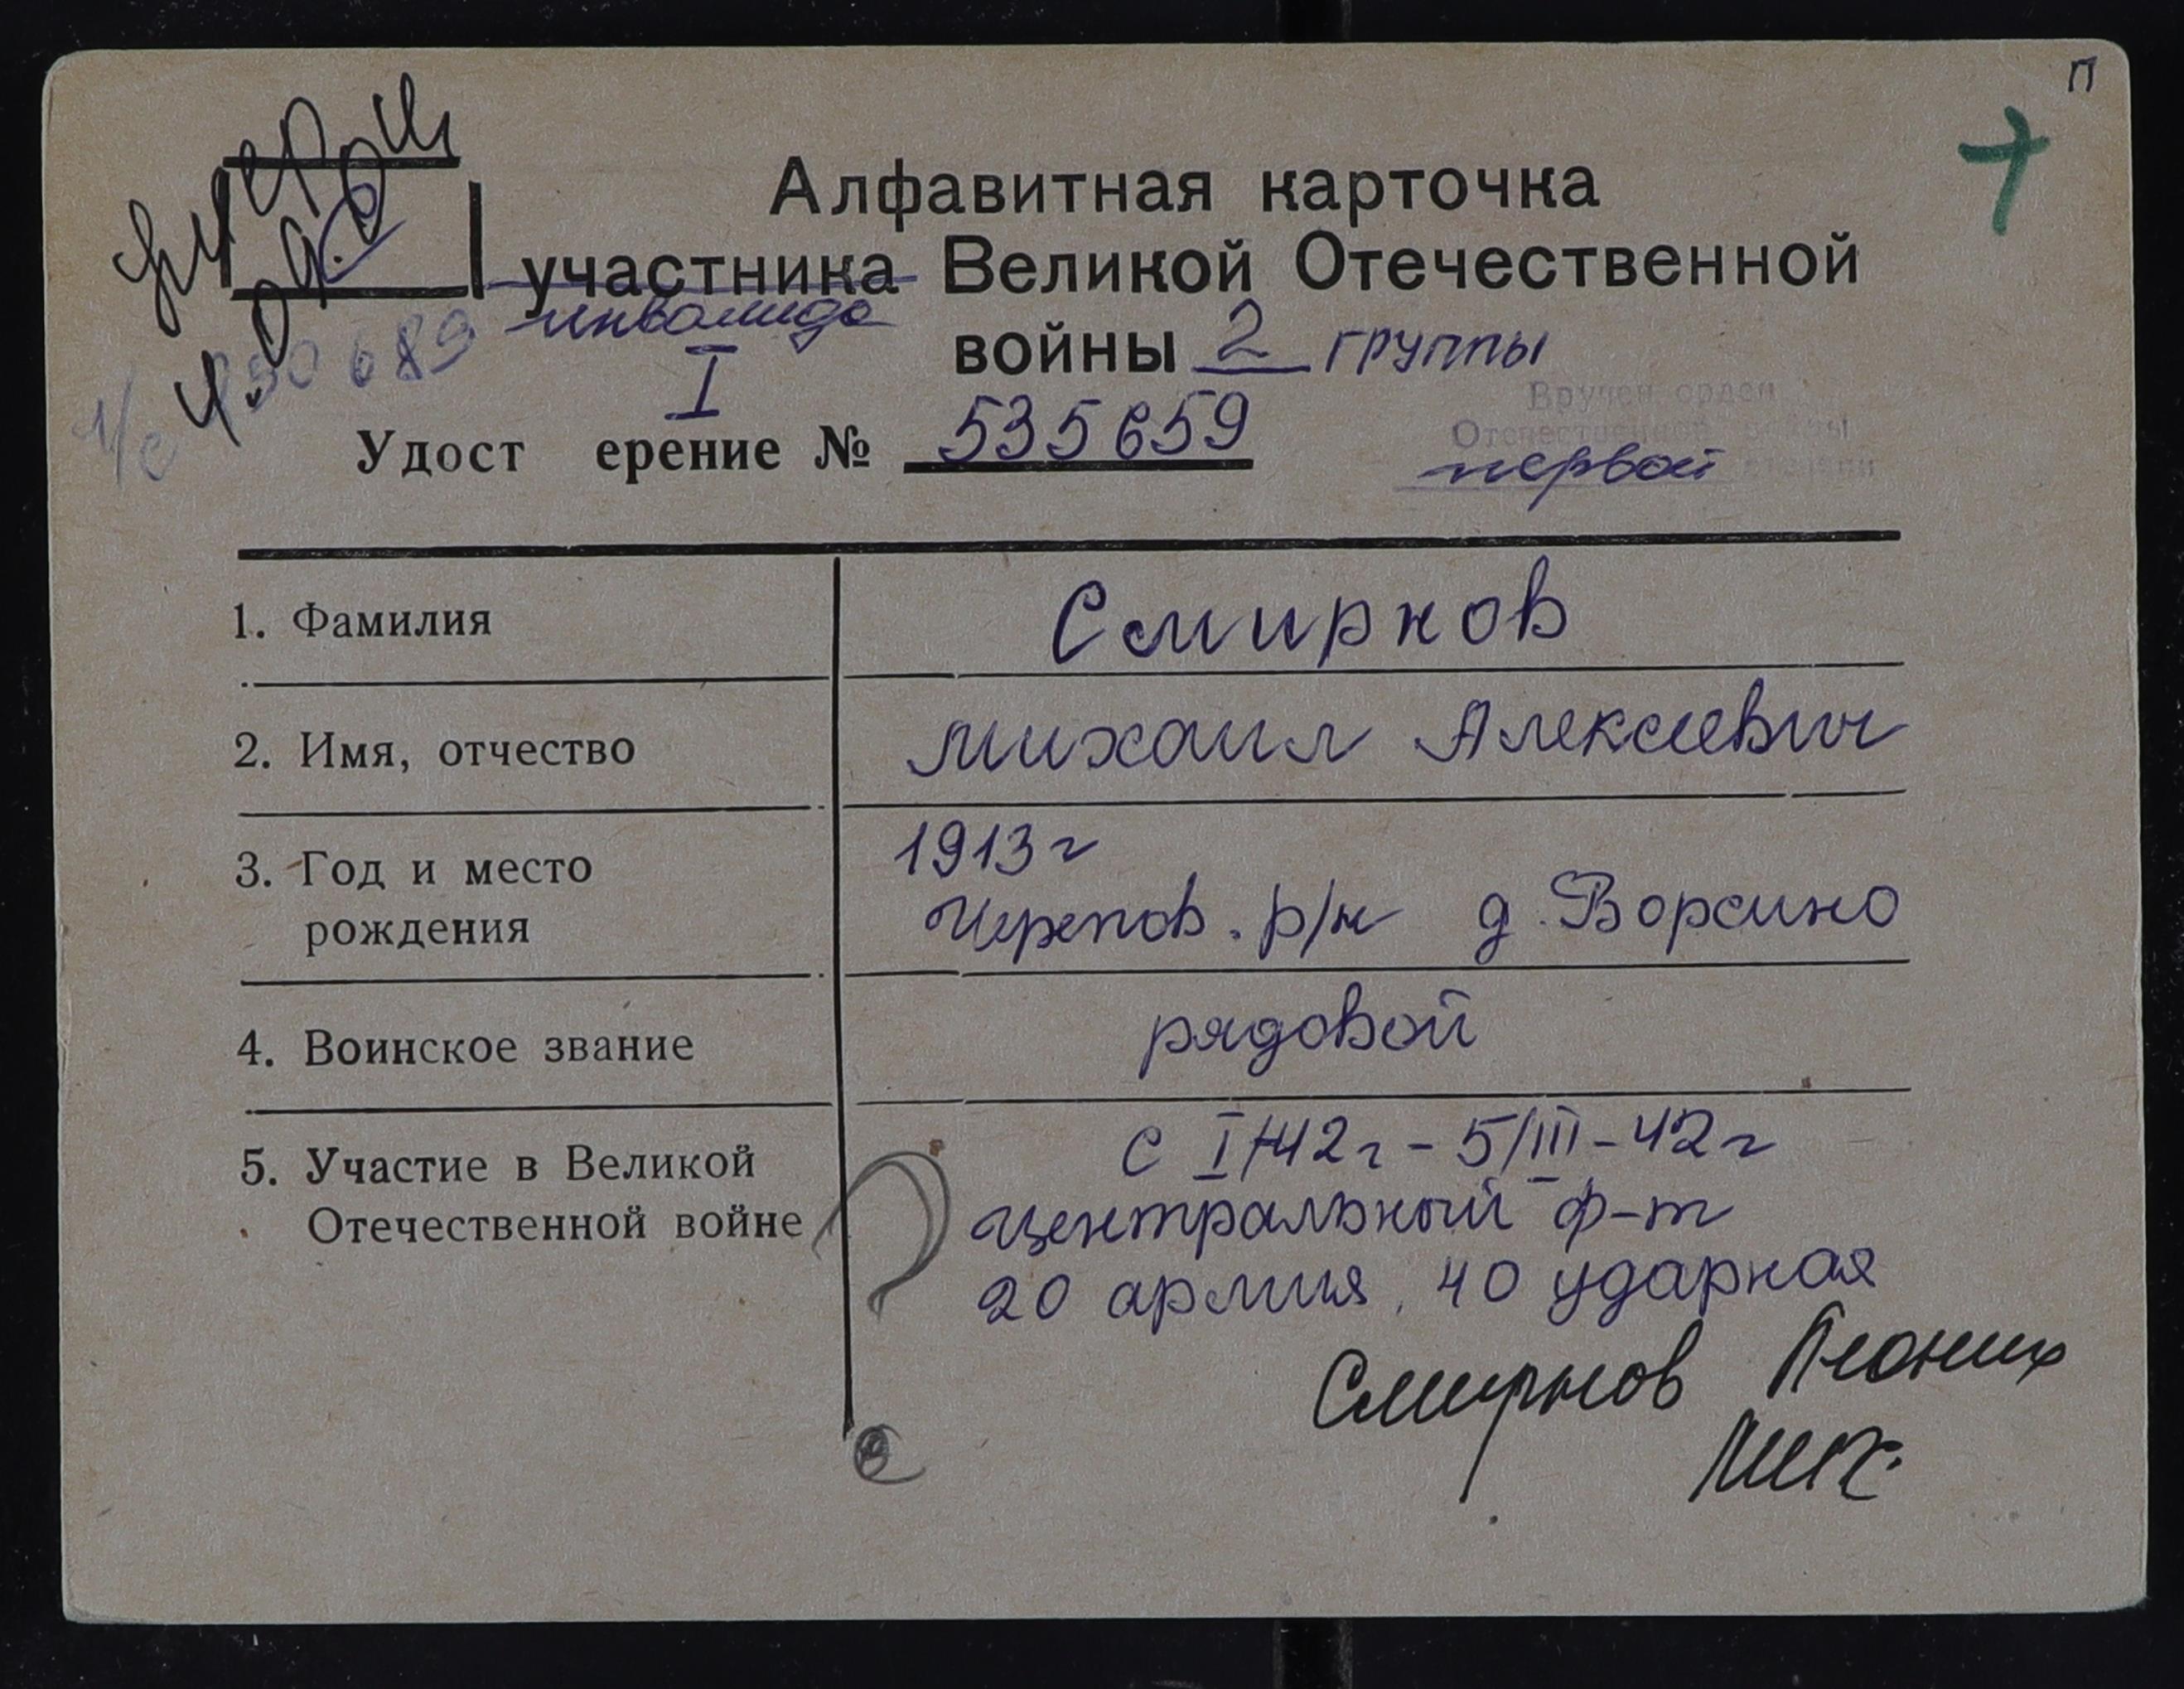 П
умер
Алфавитная карточка
участника Великой Отечественной
инвалида
войны 2 группы
I
Удост ерение № 535659
Вручен орден
Отечественной войны
первой степени
1. Фамилия Смирнов
2. Имя, отчество Михаил Алексеевич
3. Год и место 1913 г
рождения Черепов. р/н д. Ворсино
4. Воинское звание рядовой
5. Участие в Великой С I/42г - 5/III - 42г
Отечественной войне центральный ф-т
20 армия, 40 ударная
Смирнов
Мих.